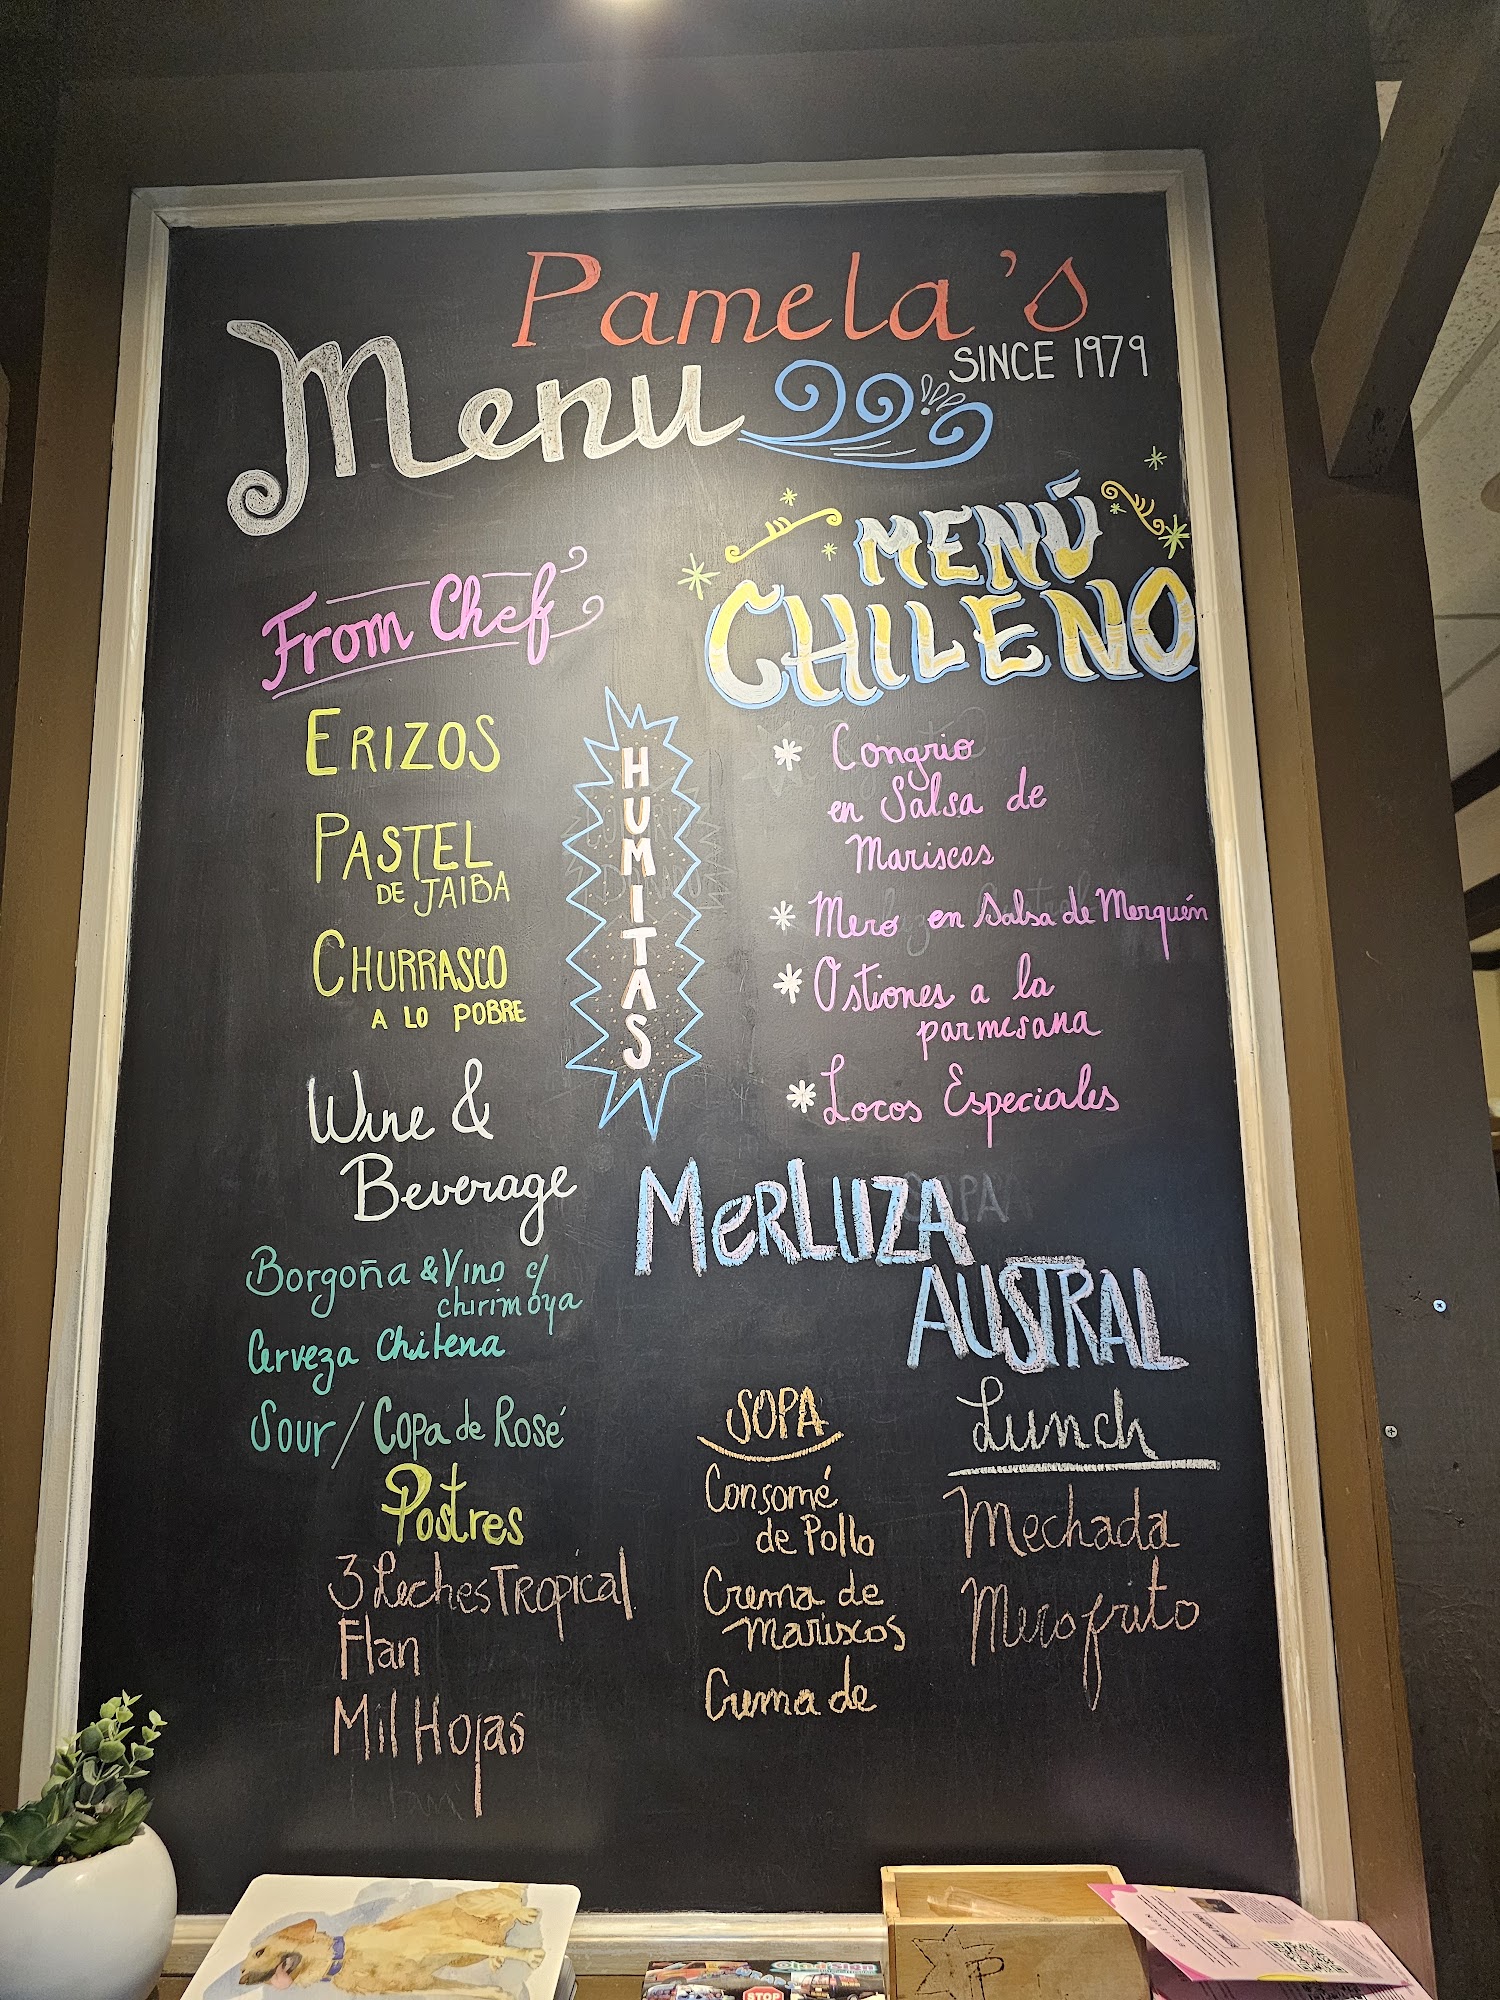 Pamela's
SINCE 1979
Menu
From Chef
ERIZOS
PASTEL
DE JAIBA
CHURRASCO
A LO POBRE
HUMITAS
MENÚ
CHILENO
* Congrio
en Salsa de
Mariscos
* Mero en Salsa de Merquén
* Ostiones a la
parmesana
* Locos Especiales
MERLUZA
AUSTRAL
Wine &
Beverage
Borgoña & Vino c/
chirimoya
Cerveza Chilena
Sour / Copa de Rosé
Postres
3 Leches Tropical
Flan
Mil Hojas
SOPA
Consomé
de Pollo
Crema de
Mariscos
Crema de
Lunch
Mechada
Mero frito
STOP
P